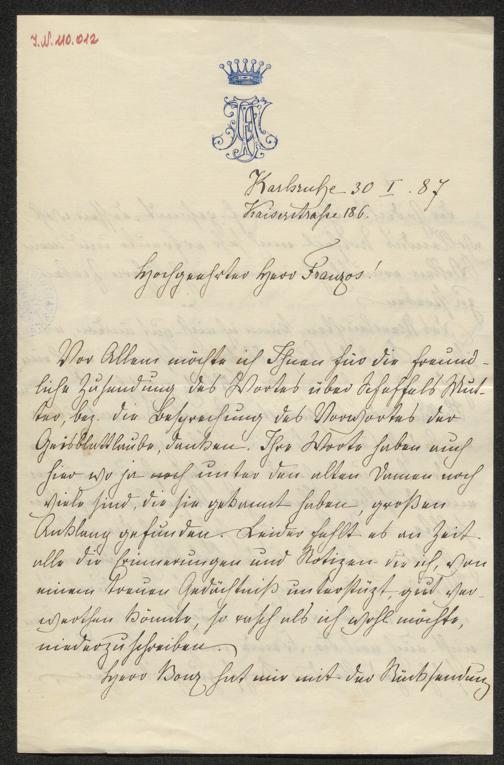 I.N. 110.012
Karlsruhe 30 I. 87
Kaiserstraße 186.
Hochgeehrter Herr Franzos!
Vor Allem möchte ich Ihnen für die freund-
liche Zusendung des Wortes über Scheffels Mut-
ter, bez. die Besprechung des Vorwortes der
Geisblattlaube, danken. Ihre Worte haben auch
hier wo ja noch unter den alten Damen noch
viele sind, die sie gekannt haben, großen
Anklang gefunden. Leider fehlt es an Zeit
alle die Erinnerungen und Notizen die ich, von
einem treuen Gedächtniß unterstüzt, gut ver-
werthen könnte, so rasch als ich wohl möchte,
niederzuschreiben.
Herr Bonz hat mir mit der Rücksendung